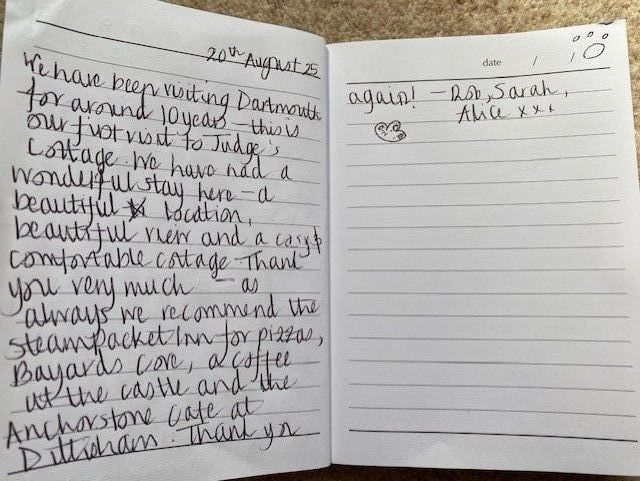 20th August 25
We have been visiting Dartmouth
for around 10 years - this is
our first visit to Judge's
Cottage. We have had a
wonderful stay here - a
beautiful location,
beautiful view and a cosy &
comfortable cottage. Thank
you very much - as
always we recommend the
Steampacket Inn for pizzas,
Bayards Cove, a coffee
at the castle and the
Anchorstone Cafe at
Dittisham. Thank you
date / /
again! - Rob, Sarah,
Alice xxx